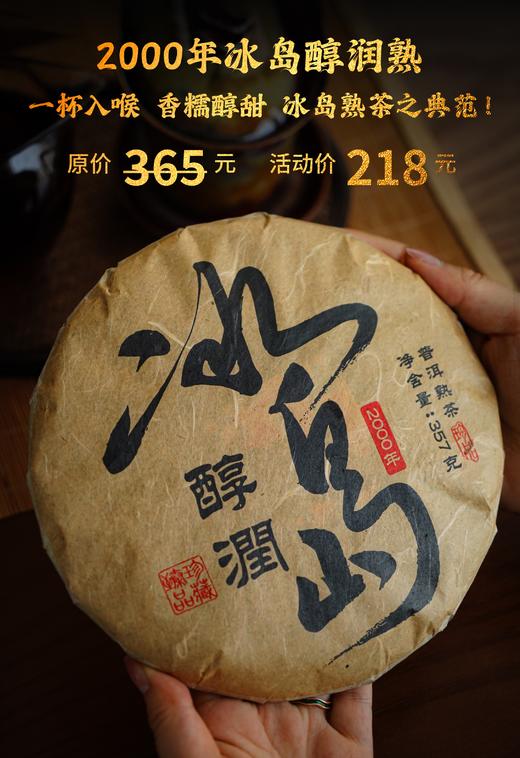 2000年冰岛醇润熟
一杯入喉 香糯醇甜 冰岛熟茶之典范！
原价 365 元 活动价 218 元
冰岛
醇潤
2000年
普洱熟茶
净含量：357克
珍藏
品